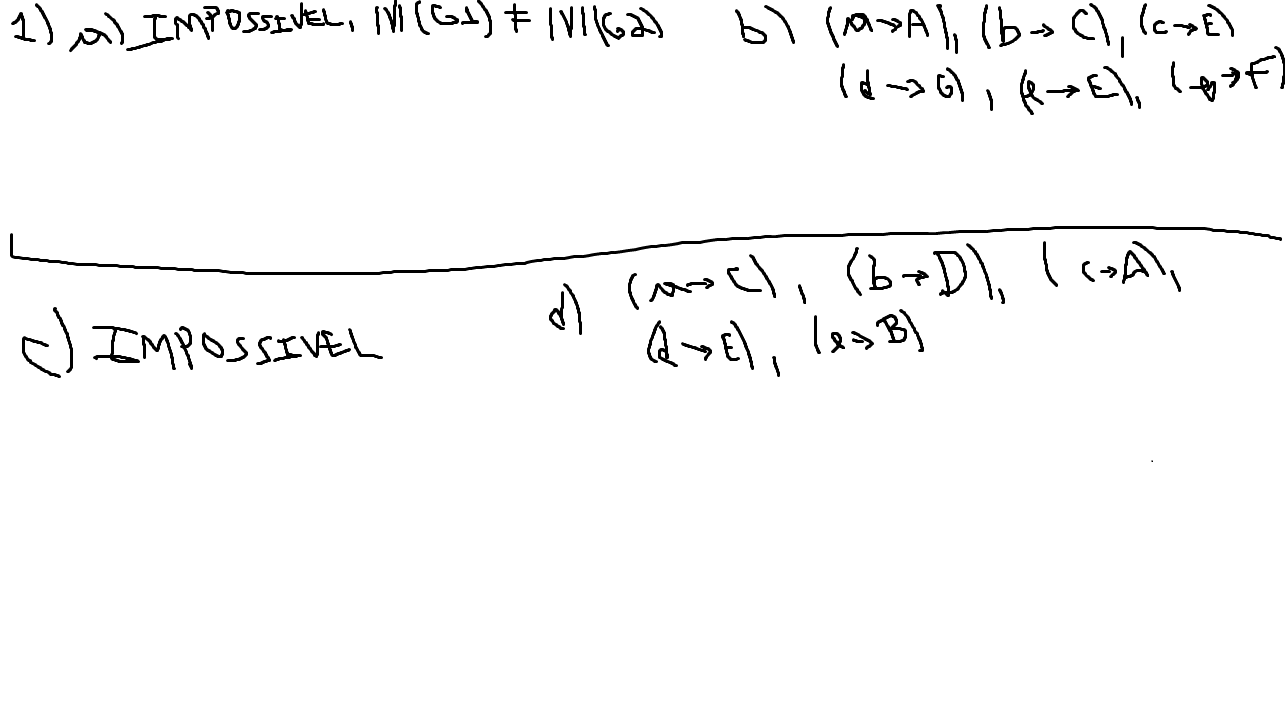 1) a) IMPOSSIVEL, |V|(G1) ≠ |V|(G2)
b) (a→A), (b→C), (c→E)
(d→G), (e→E), ( →F)
c) IMPOSSIVEL
d) (a→C), (b→D), (c→A),
(d→E), (e→B)